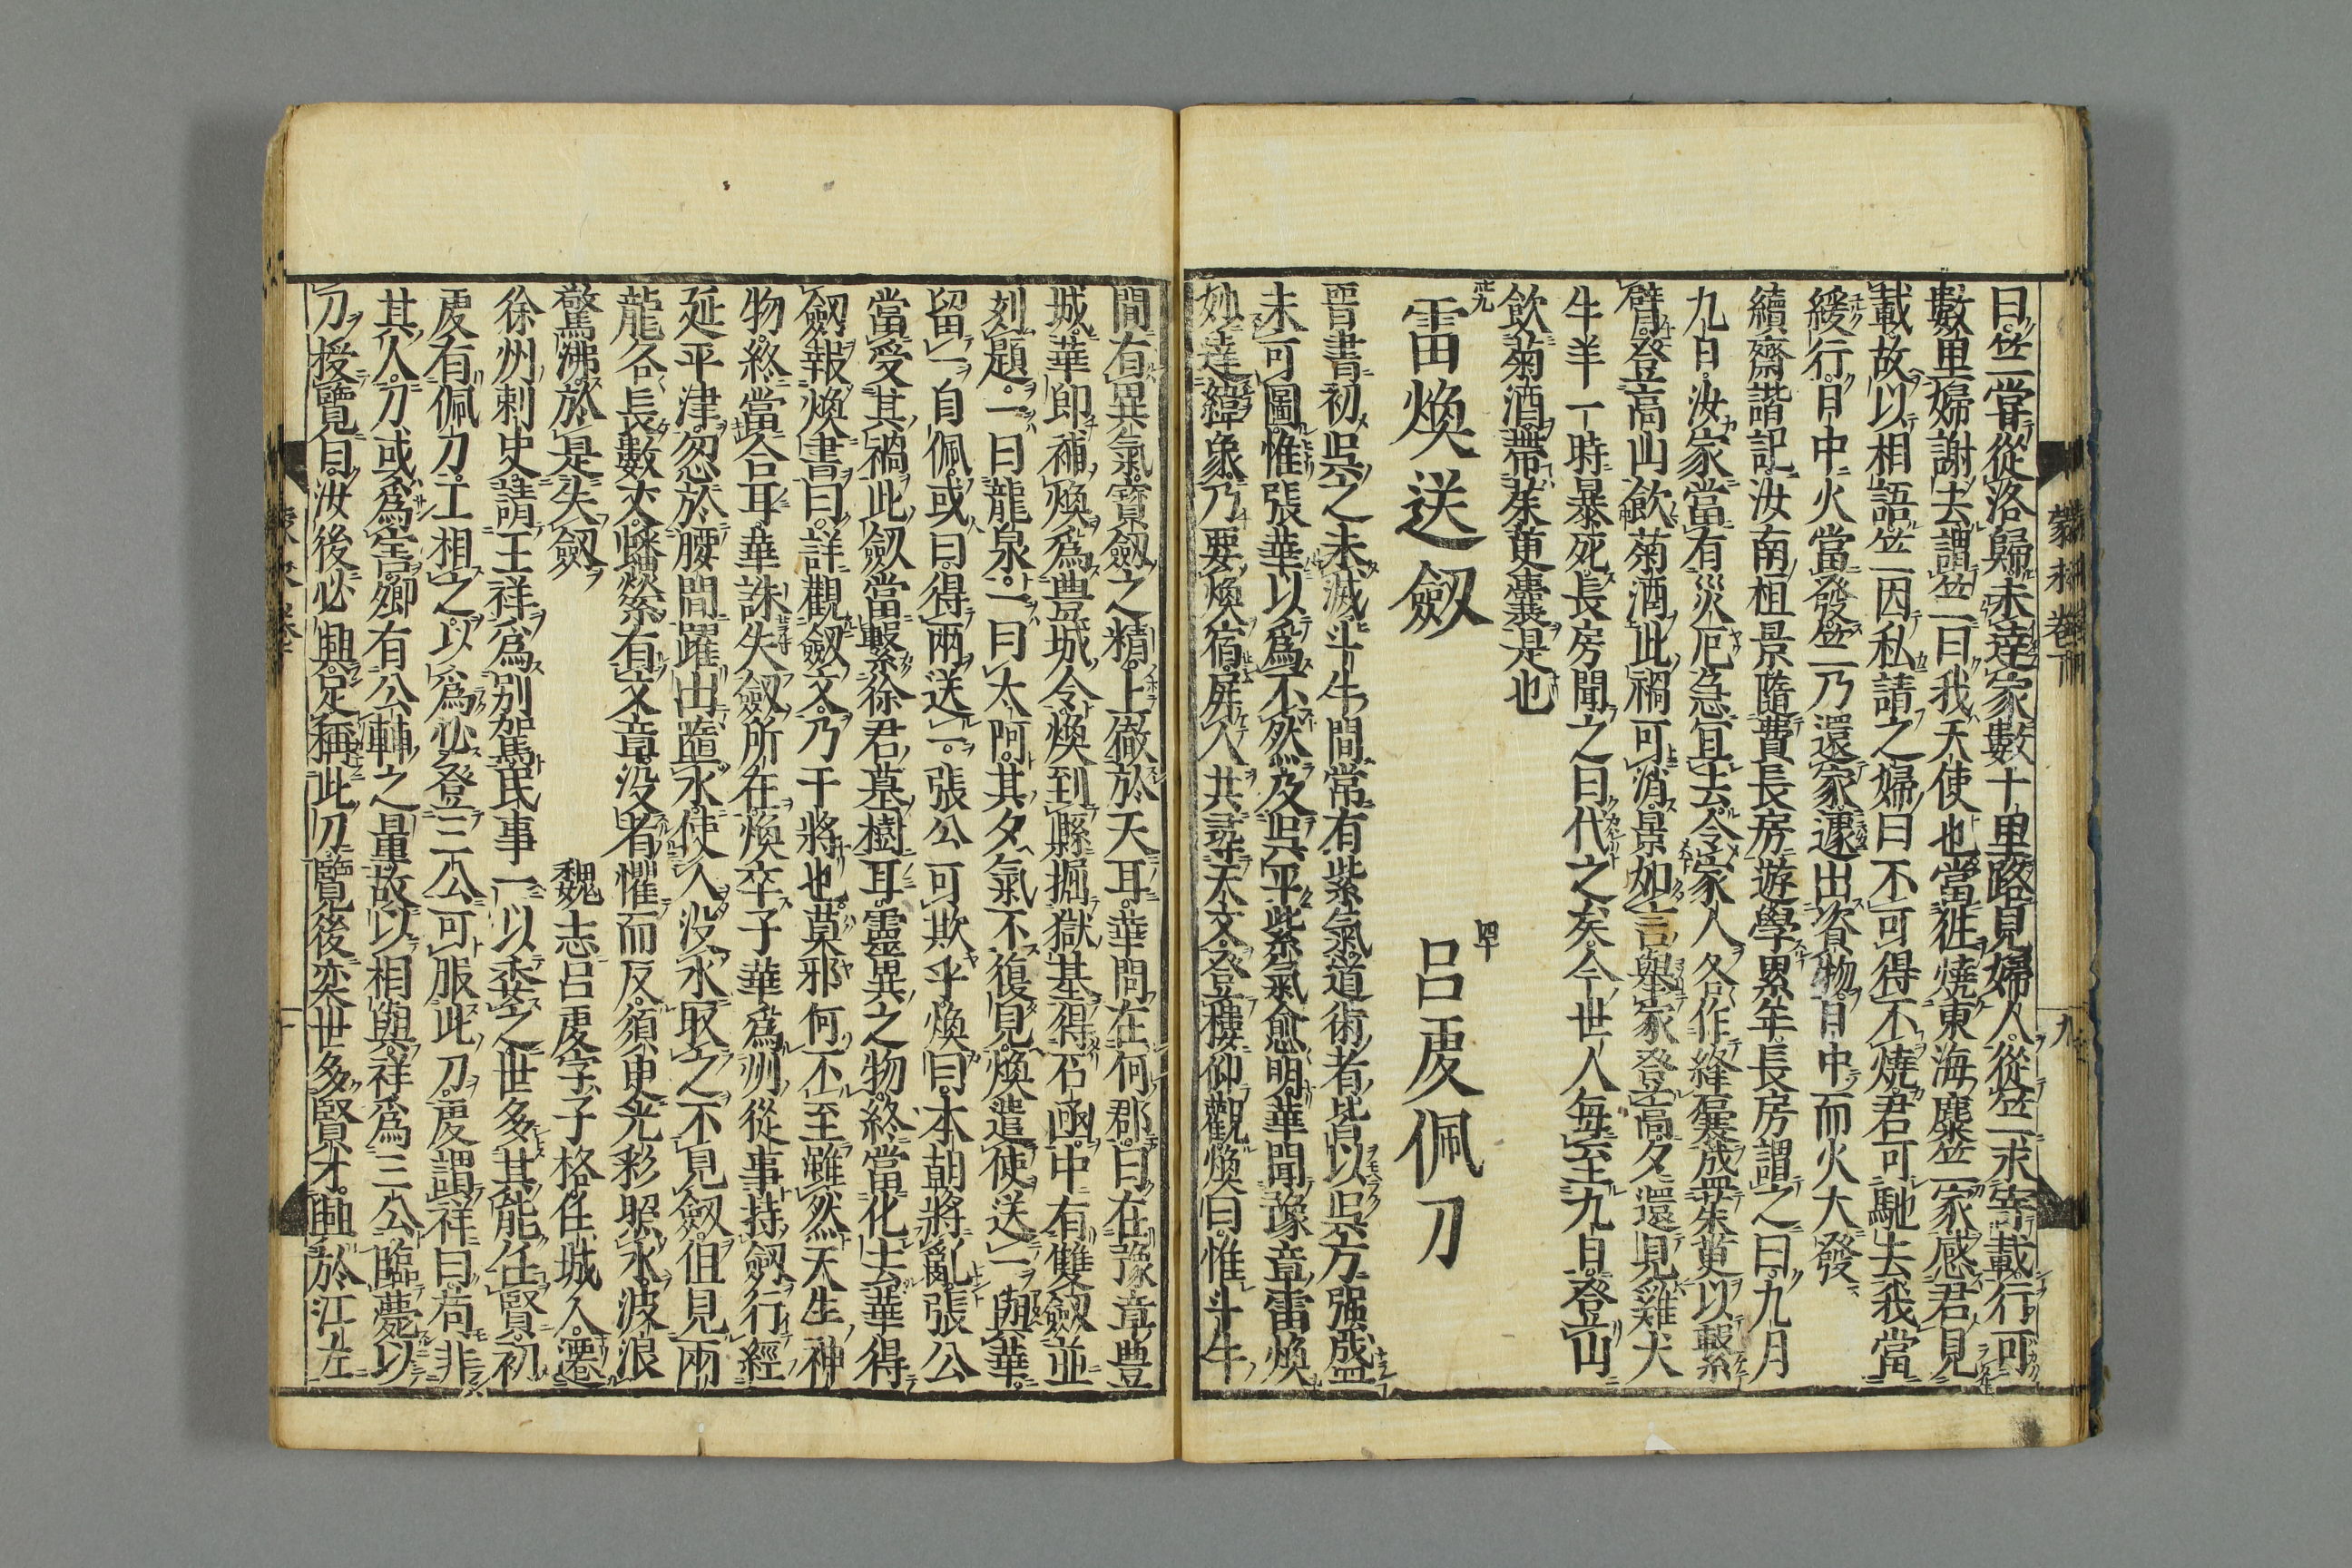 曰竺嘗從洛歸未達家數十里路見婦人從竺求寄載行可
數里婦謝去謂竺曰我天使也當徃燒東海麋竺家感君見
載故以相語竺因私請之婦曰不可得不燒君可馳去我當
緩行日中火當發竺乃還家遽出資物日中而火大發
續齊諧記汝南桓景隨費長房遊學累年長房謂之曰九月
九日汝家當有災厄急冝去令家人各作絳囊盛茱萸以繫
臂登高山飲菊酒此禍可消景如言舉家登高夕還見雞犬
牛羊一時暴死長房聞之曰代之矣今世人每至九日登山
飲菊酒帶茱萸囊是也
雷煥送劔　呂虔佩刀
晉書初吳之未滅斗牛間常有紫氣道術者皆以吳方强盛
未可圖惟張華以爲不然及吳平紫氣愈明華聞豫章雷煥
妙達緯象乃要煥宿屏人共尋天文登樓仰觀煥曰惟斗牛
蒙求卷下
九
間有異氣寳劔之精上徹於天耳華問在何郡曰在豫章豊
城華即補煥爲豊城令煥到縣掘獄基得石凾中有雙劔並
刻題一曰龍泉一曰太阿其夕氣不復見煥遣使送一與華
留一自佩或曰得兩送一張公可欺乎煥曰本朝將亂張公
當受其禍此劔當繫徐君墓樹耳靈異之物終當化去華得
劔報煥書曰詳觀劔文乃干將也莫邪何不至雖然天生神
物終當合耳華誅失劔所在煥卒子華爲州從事持劔行經
延平津忽於腰間躍出墮水使人没水取之不見劔但見兩
龍各長數丈蟠縈有文章没者懼而反須臾光彩照水波浪
驚沸於是失劔
魏志呂虔字子格任城人遷
徐州刺史請王祥爲別駕民事一以委之世多其能任賢初
虔有佩刀工相之以爲必登三公可服此刀虔謂祥曰苟非
其人刀或爲害卿有公輔之量故以相與祥爲三公臨薨以
刀授覽曰汝後必興足稱此刀覽後奕世多賢才興於江左